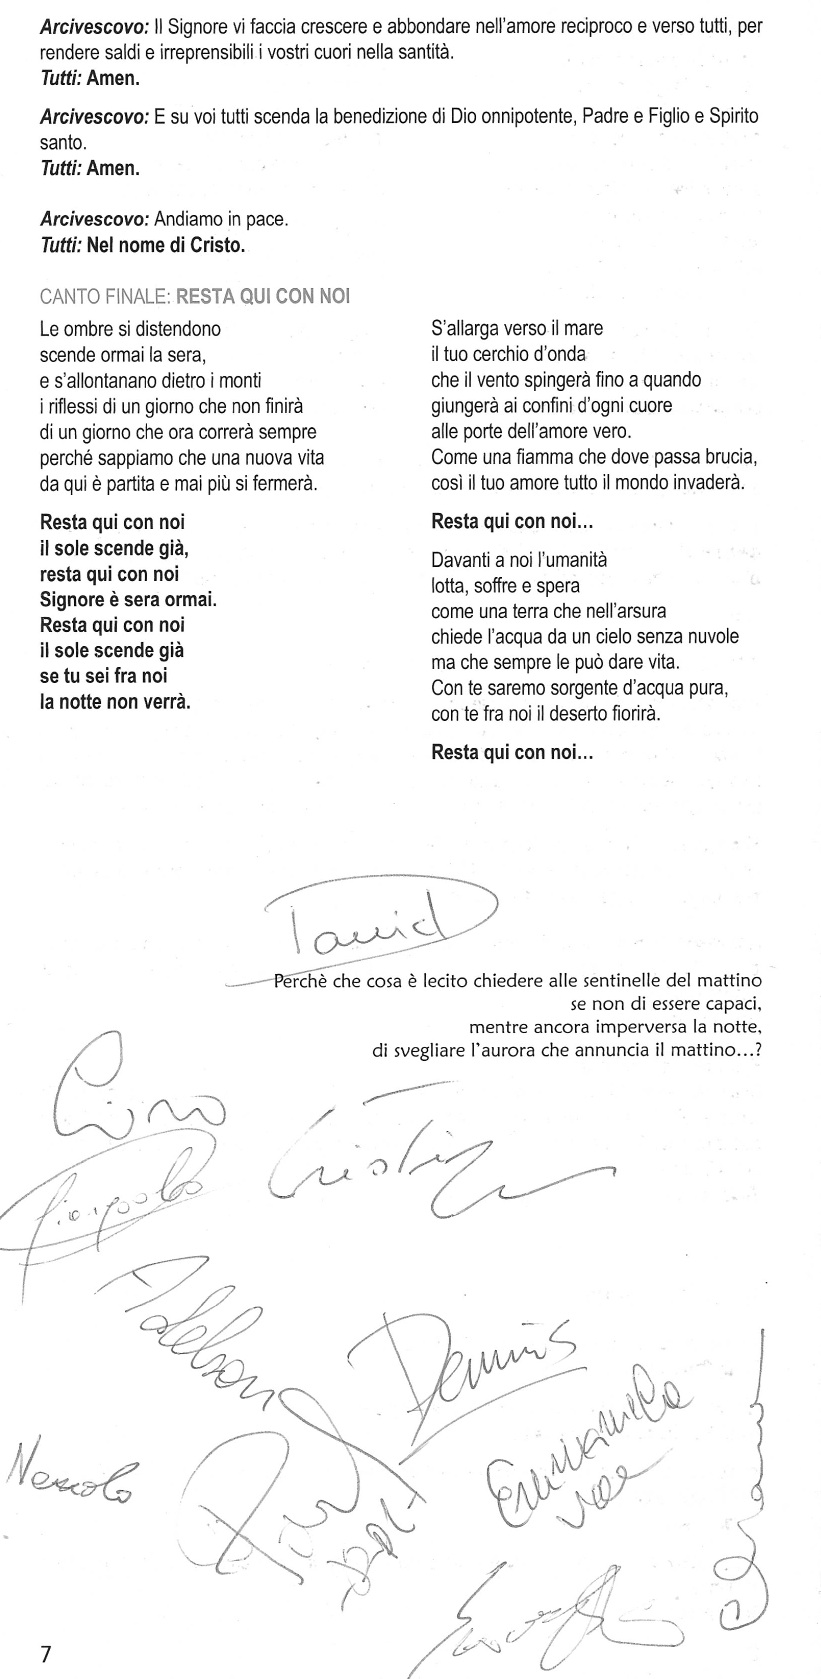 Arcivescovo: Il Signore vi faccia crescere e abbondare nell'amore reciproco e verso tutti, per
rendere saldi e irreprensibili i vostri cuori nella santità.
Tutti: Amen.
Arcivescovo: E su voi tutti scenda la benedizione di Dio onnipotente, Padre e Figlio e Spirito
santo.
Tutti: Amen.
Arcivescovo: Andiamo in pace.
Tutti: Nel nome di Cristo.
CANTO FINALE: RESTA QUI CON NOI
Le ombre si distendono
scende ormai la sera,
e s'allontanano dietro i monti
i riflessi di un giorno che non finirà
di un giorno che ora correrà sempre
perché sappiamo che una nuova vita
da qui è partita e mai più si fermerà.
Resta qui con noi
il sole scende già,
resta qui con noi
Signore è sera ormai.
Resta qui con noi
il sole scende già
se tu sei fra noi
la notte non verrà.
S'allarga verso il mare
il tuo cerchio d'onda
che il vento spingerà fino a quando
giungerà ai confini d'ogni cuore
alle porte dell'amore vero.
Come una fiamma che dove passa brucia,
così il tuo amore tutto il mondo invaderà.
Resta qui con noi...
Davanti a noi l'umanità
lotta, soffre e spera
come una terra che nell'arsura
chiede l'acqua da un cielo senza nuvole
ma che sempre le può dare vita.
Con te saremo sorgente d'acqua pura,
con te fra noi il deserto fiorirà.
Resta qui con noi...
David
Perchè che cosa è lecito chiedere alle sentinelle del mattino
se non di essere capaci,
mentre ancora imperversa la notte,
di svegliare l'aurora che annuncia il mattino...?
Ciro
Dennis
Emmanuela
7